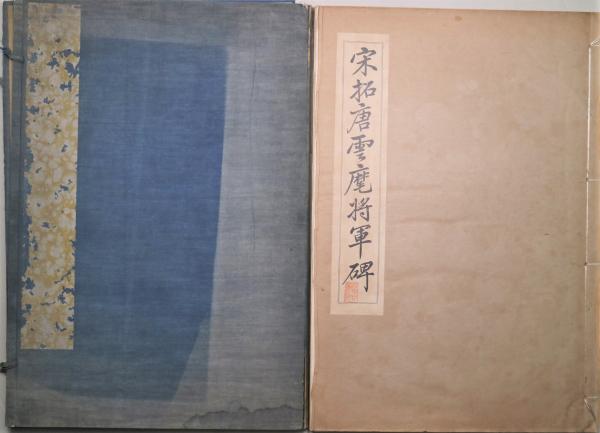 宋拓唐雲麾將軍碑